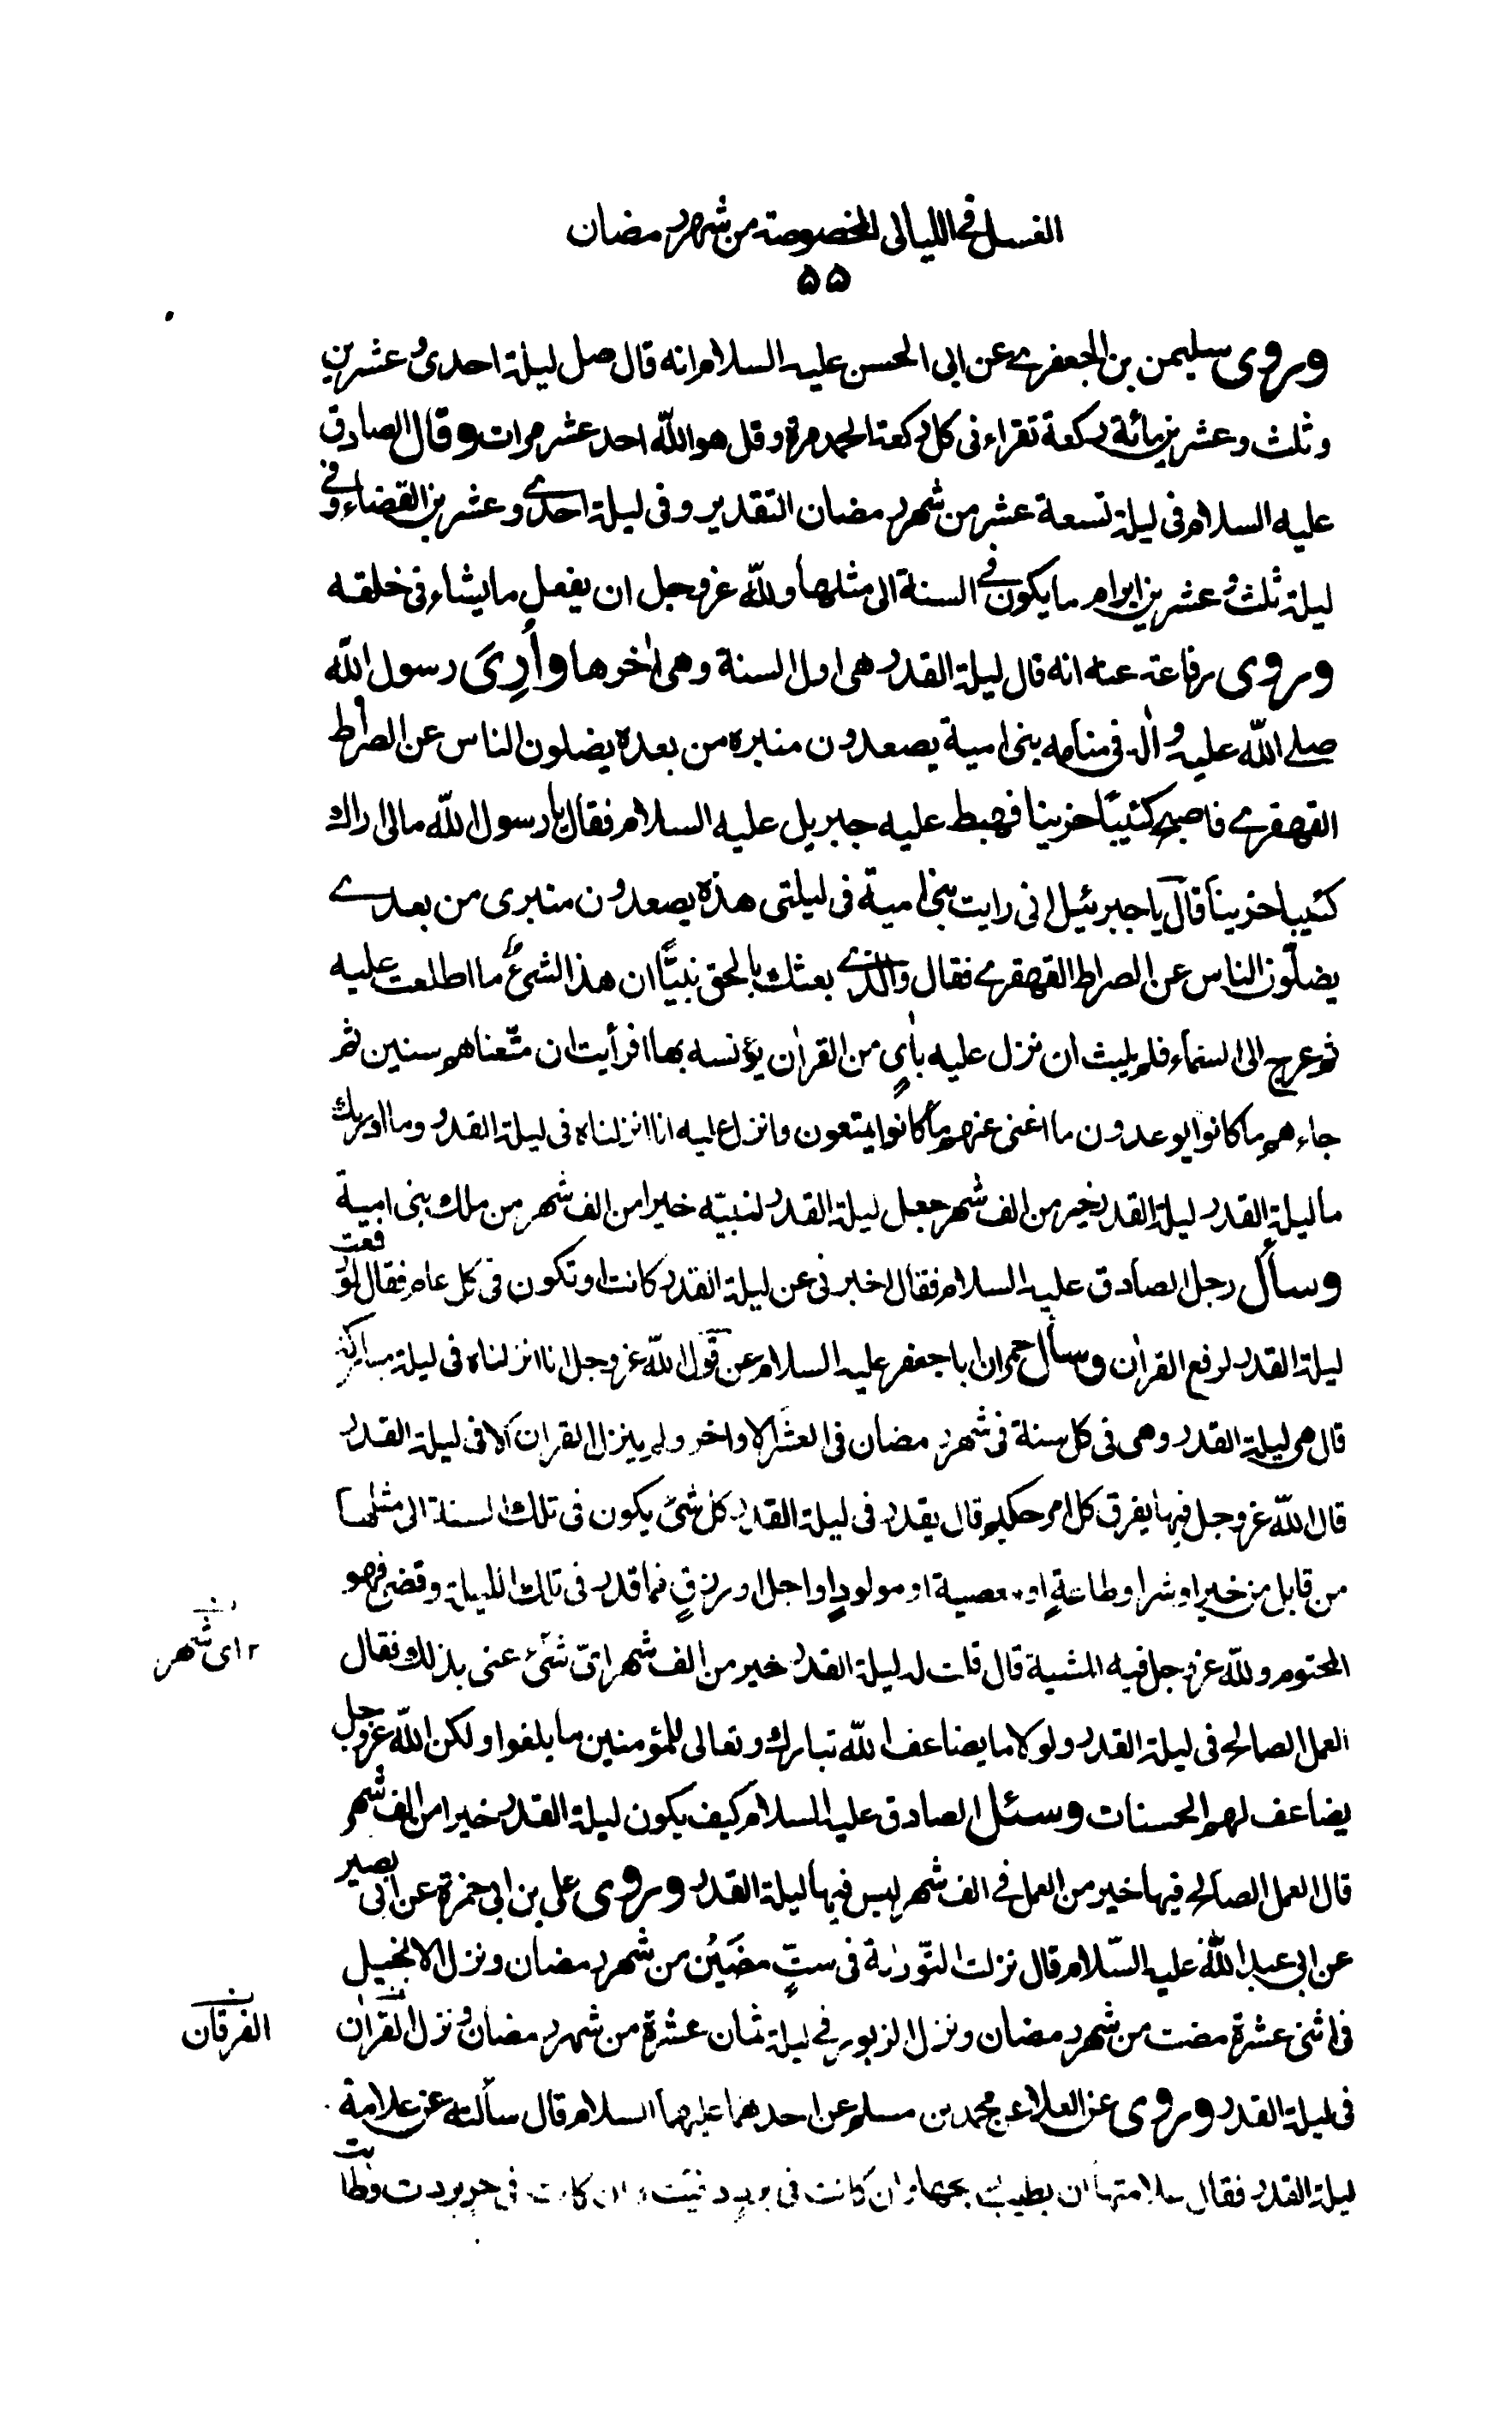 الغسل فى الليالى المخصوصة من شهر رمضان
٥٥
وروى سليمن بن الجعفرى عن ابى الحسن عليه السلام انه قال صل ليلة احدى و عشرين
و ثلث و عشرين مائة ركعة تقراء فى كل ركعة الحمد مرة و قل هو اللّه احد عشر مرات وقال الصادق
عليه السلام فى ليلة تسعة عشر من شهر رمضان التقدير و فى ليلة احدى و عشرين القضاء و فى
ليلة ثلث و عشرين ابرام ما يكون فى السنة الى مثلها و للّه عز و جل ان يفعل ما يشاء فى خلقه
وروى رفاعة عنه انه قال ليلة القدر هى اول السنة و هى اٰخرها وأُرِىَ رسول اللّه
صلى اللّه عليه و اٰله فى منامه بنى امية يصعدون منبره من بعده يضلون الناس عن الصراط
القهقرى فاصبح كئيبًا حزينا فهبط عليه جبريل عليه السلام فقال يا رسول اللّه مالى اراك
كئيبا حزينا قال يا جبرئيل انى رايت بنى امية فى ليلتى هذه يصعدون منبرى من بعدى
يضلّون الناس عن الصراط القهقرى فقال والذى بعثك بالحق نبيًّا ان هذا الشىء ما اطلعت عليه
ثم عرج الى السماء فلم يلبث ان نزل عليه باٰىٍ من القراٰن يؤنسه بها افرأيت ان متّعناهم سنين ثم
جاءهم ما كانوا يوعدون ما اغنى عنهم ما كانوا يمتعون و انزل عليه انا انزلناه فى ليلة القدر و ما ادريك
ما ليلة القدر ليلة القدر خير من الف شهر جعل ليلة القدر لنبيّه خيرا من الف شهر من ملك بنى امية
وسأل رجل الصادق عليه السلام فقال اخبرنى عن ليلة القدر كانت او تكون فى كل عام فقال لو رفعت
ليلة القدر لرفع القراٰن وسأل حمران ابا جعفر عليه السلام عن قول اللّه عز و جل انا انزلناه فى ليلة مباركة
قال هى ليلة القدر و هى فى كل سنة فى شهر رمضان فى العشر الاواخر و لم ينزل القراٰن الا فى ليلة القدر
قال اللّه عز و جل فيها يفرق كل امر حكيم قال يقدر فى ليلة القدر كل شئ يكون فى تلك السنة الى مثلها
من قابل من خير او شر او طاعةٍ او معصية او مولودٍ او اجل او رزقٍ فما قدر فى تلك الليلة و قضى فهو
المحتوم و للّه عز و جل فيه المشية قال قلت له ليلة القدر خير من الف شهر اىّ شئ عنى بذلك فقال
اى شهر
العمل الصالح فى ليلة القدر و لو لا ما يضاعف اللّه تبارك و تعالى للمؤمنين ما بلغوا و لكن اللّه عز و جل
يضاعف لهم الحسنات وسئل الصادق عليه السلام كيف يكون ليلة القدر خيرا من الف شهر
قال العمل الصالح فيها خير من العمل فى الف شهر ليس فيها ليلة القدر وروى على بن ابى حمزة عن ابى بصير
عن ابى عبد اللّه عليه السّلام قال نزلت التّورٰية فى ستٍّ مضَيْن من شهر رمضان و نزل الانجيل
فى اثنى عشرة مضت من شهر رمضان و نزل الزبور فى ليلة ثمان عشرة من شهر رمضان و نزل القراٰن
الفرقان
فى ليلة القدر وروى عن العلاء عن محمد بن مسلم عن احدهما عليهما السلام قال سألته عن علامة
ليلة القدر فقال علامتها ان يطيب ريحها و ان كانت فى برد دفئت و ان كانت فى حر بردت و طابت